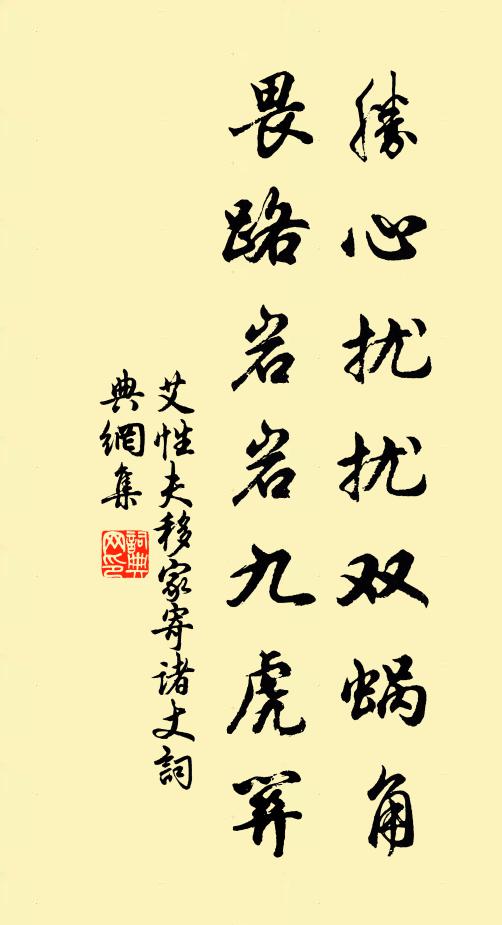 胜心扰扰双蜗角
畏路岩岩九虎关
艾性夫移家寄诸丈詞
典網集
詞典
网印